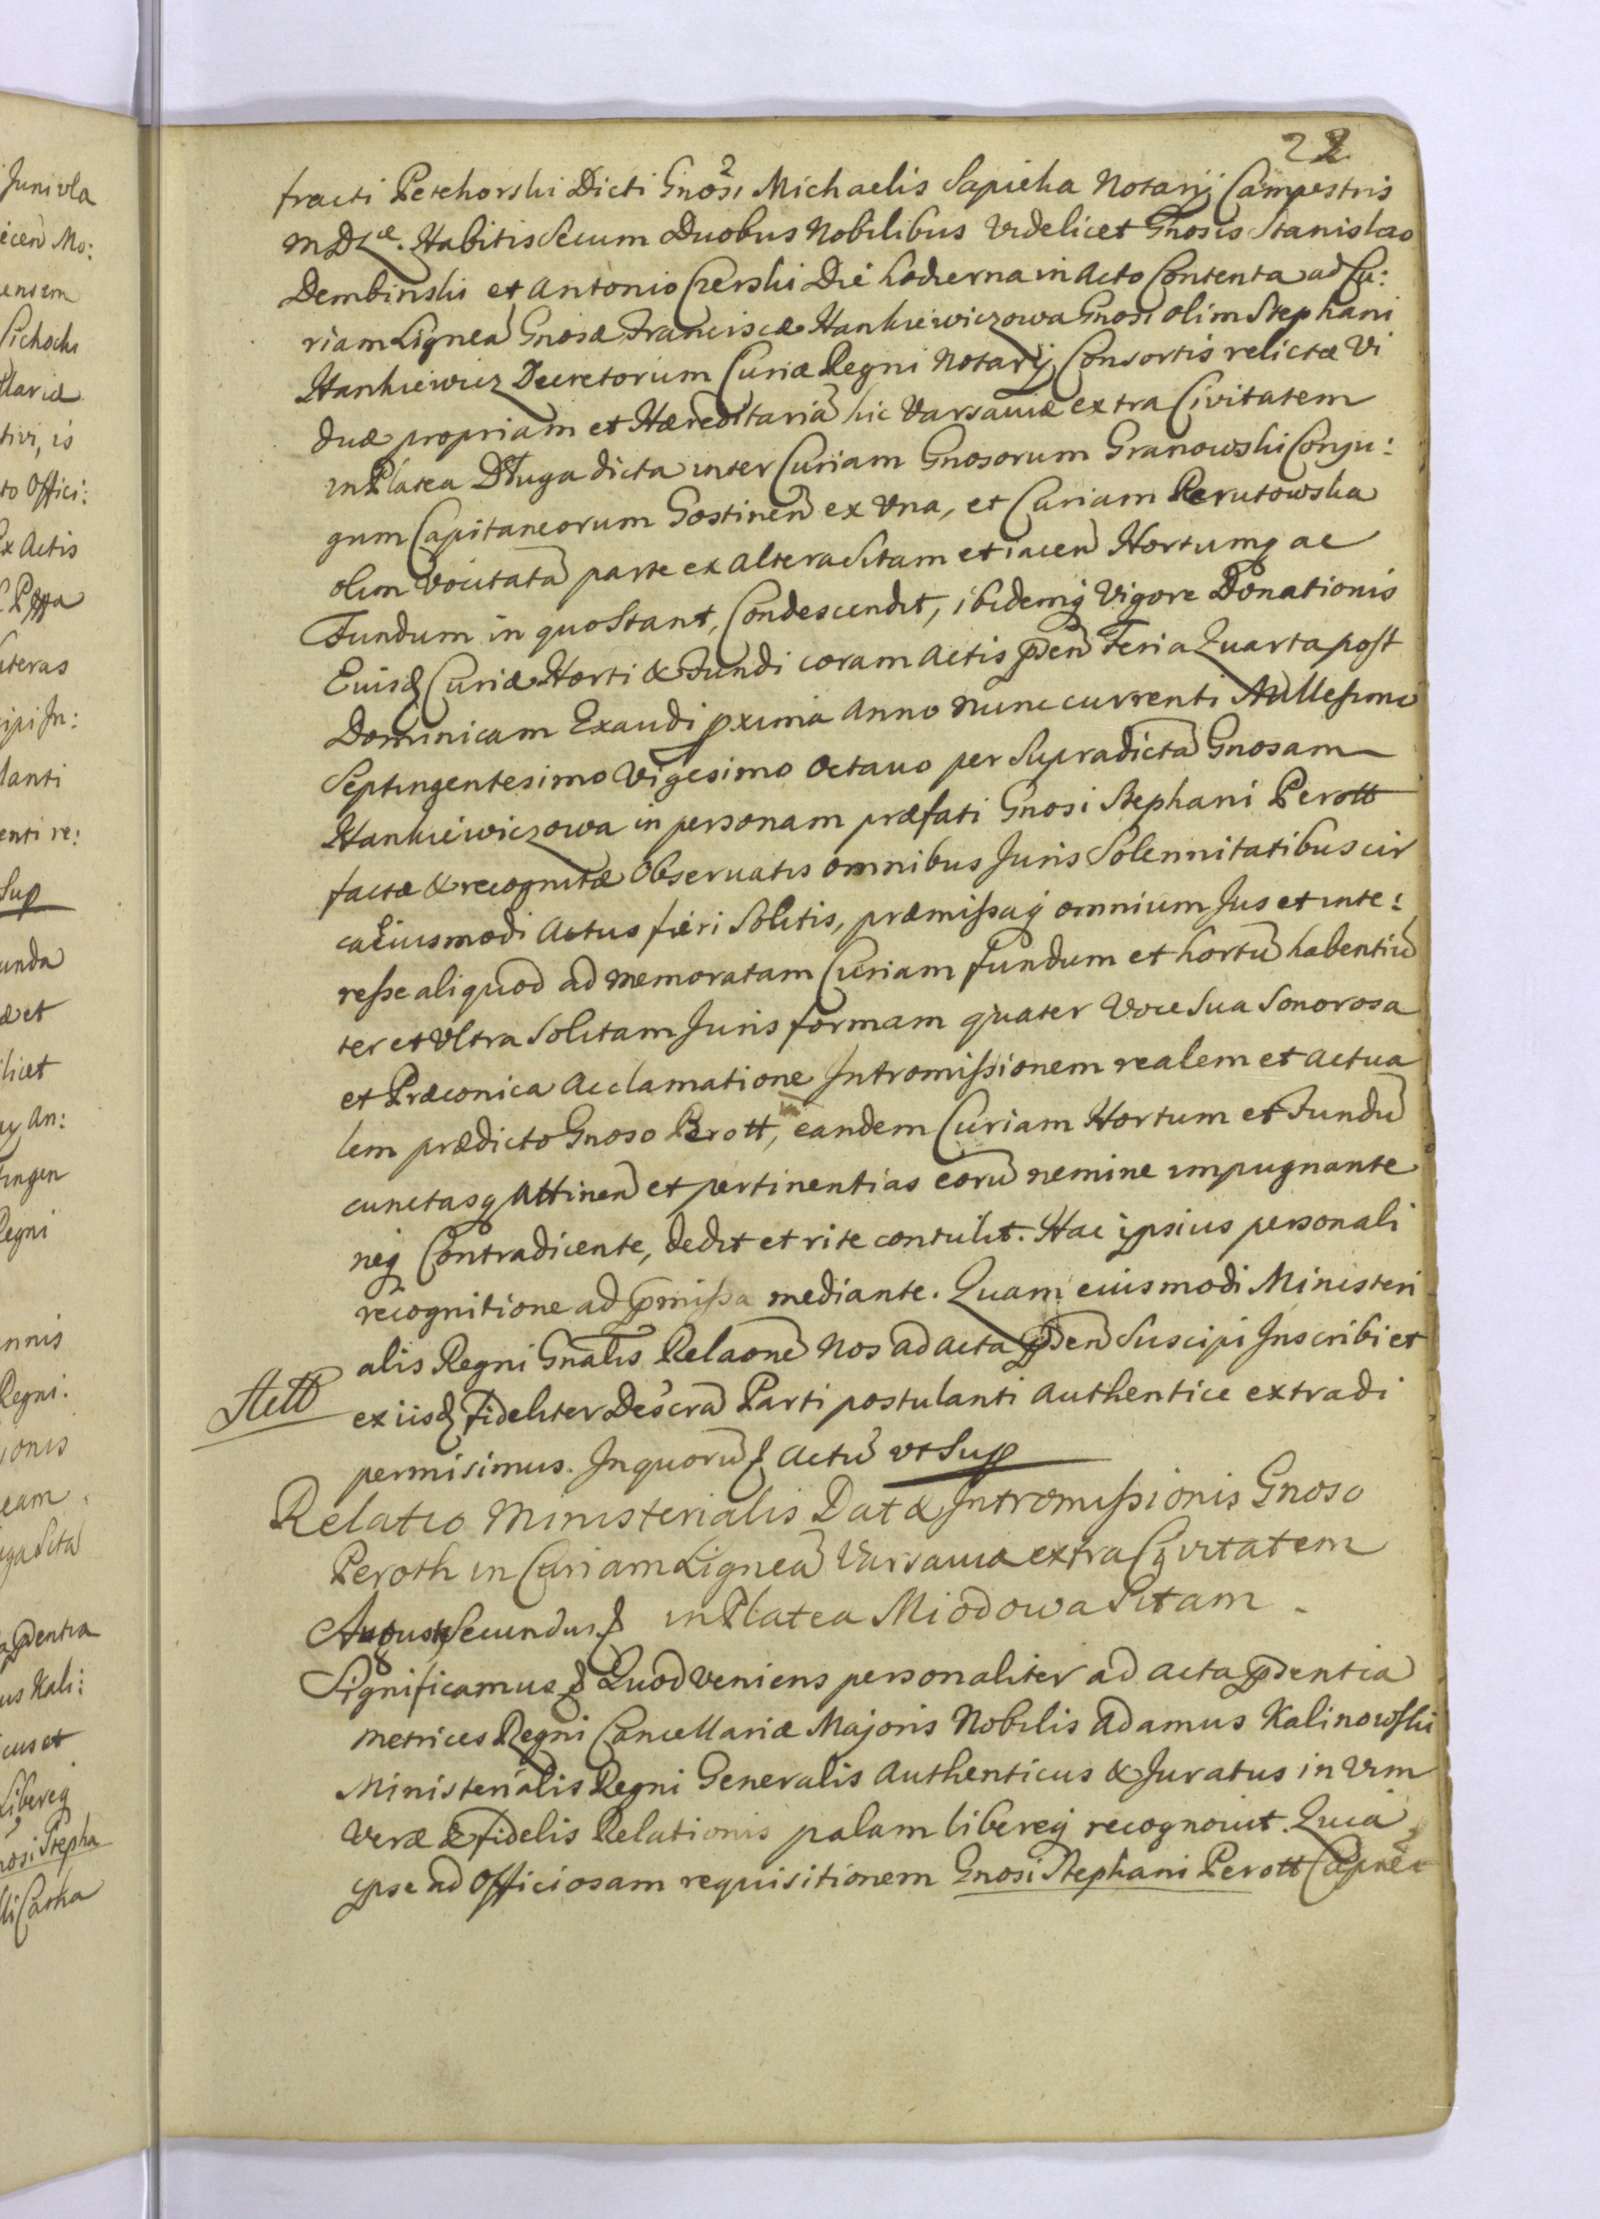 22
fracti Petehorski Dicti Gnosi Michaelis Sapieha Notarij Campestris
M D Lae. Habitis Secum Duobus Nobilibus Videlicet Gnosis Stanislao
Dembinski et Antonio Czerski Die hodierna in Acto Contenta ad Cu:
riam Ligneã Gnosæ Franciscæ Hankiewiczowa Gnosi olim Stephani
Hankiewicz Decretorum Curiæ Regni Notarij Consortis relictæ Vi
duæ propriam et Hæreditariã hic Varsaviæ extra Civitatem
in Platea Długa dicta inter Curiam Gnosorum Granowski Conju:
gum Capitaneorum Gostinen̄ ex Vna, et Curiam Perutowska
olim Vocitatã parte ex altera Sitam et iacen̄ Hortumq ac
Fundum in quo Stant, Condescendit, ibidemq Vigore Donationis
Eiusd Curiæ Horti & Fundi coram Actis p̄sen̄ Feria Quarta post
Dominicam Exaudi proxima Anno nunc currenti Millesimo
Septingentesimo Vigesimo Octavo per Supradictã Gnosam
Hankiewiczowa in personam præfati Gnosi Stephani Perott
factæ & recognitæ Observatis omnibus Juris Solennitatibus cir
ca Eiusmodi Actus fieri Solitis, præmissaq omnium Jus et inte:
resse aliquod ad memoratam Curiam fundum et hortũ habentiũ
ter et Vltra Solitam Juris formam quater Voce Sua Sonorosa
et Præconica Acclamatione Intromissionem realem et Actua
lem prædicto Gnoso Perott, in eandem Curiam Hortum et Fundũ
cunctasq Attinen̄ et pertinentias eorũ nemine impugnante
neq Contradicente, dedit et rite contulit. Hac ipsius personali
recognitione ad p̄missa mediante. Quam eiusmodi Ministeri
alis Regni Gnalis Relaõne Nos ad acta p̄sen̄ Suscipi Inscribi et
ex iisd Fideliter Descrã Parti postulanti Authentice extradi
permisimus. In quorũ & Actũ vt Sup
Relatio Ministerialis Datæ Intromissionis Gnoso
Peroth in Curiam Ligneã Varsaviæ extra Civitatem
in Platea Miodowa Sitam.
August Secundus &
Significamus & Quod Veniens personaliter ad acta p̄sentia
Metrices Regni Cancellariæ Majoris Nobilis Adamus Kalinowski
Ministerialis Regni Generalis Authenticus & Juratus in Vim
Veræ & fidelis Relationis palam libereq recognovit. Quia
ipse ad Officiosam requisitionem Gnosi Stephani Perott Capnei